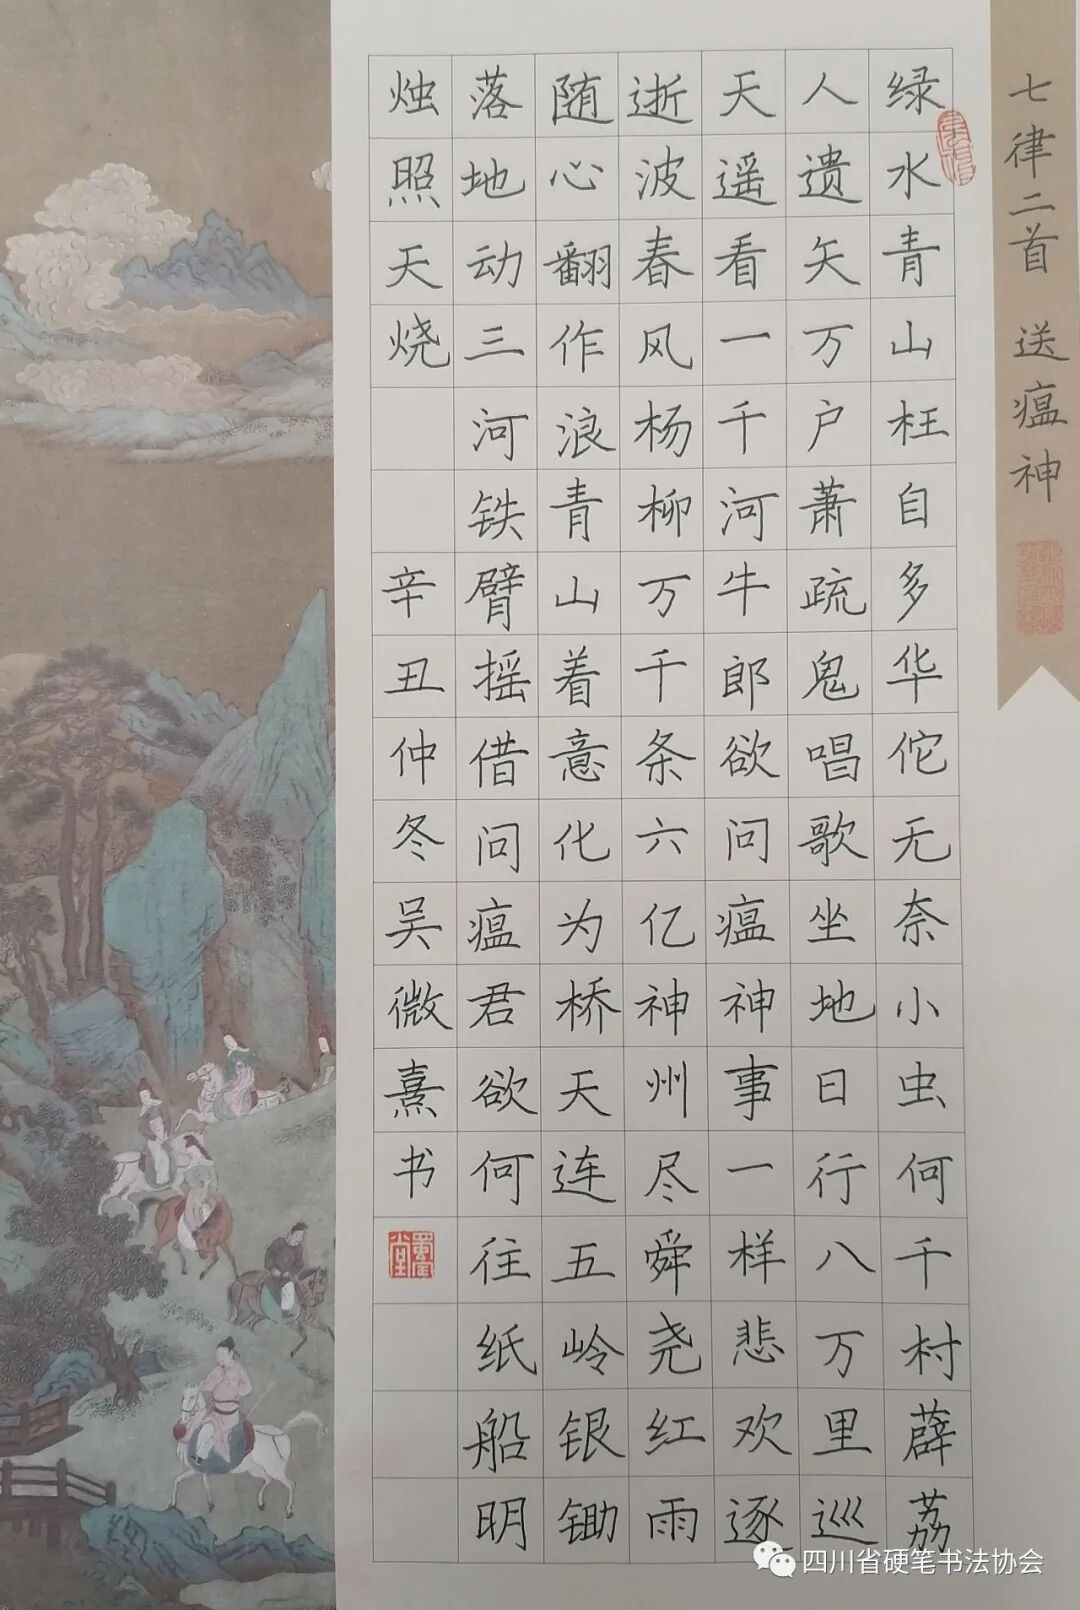 七律二首 送瘟神
绿水青山枉自多华佗无奈小虫何千村薜荔
人遗矢万户萧疏鬼唱歌坐地日行八万里巡
天遥看一千河牛郎欲问瘟神事一样悲欢逐
逝波春风杨柳万千条六亿神州尽舜尧红雨
随心翻作浪青山着意化为桥天连五岭银锄
落地动三河铁臂摇借问瘟君欲何往纸船明
烛照天烧 辛丑仲冬吴微熹书
四川省硬笔书法协会